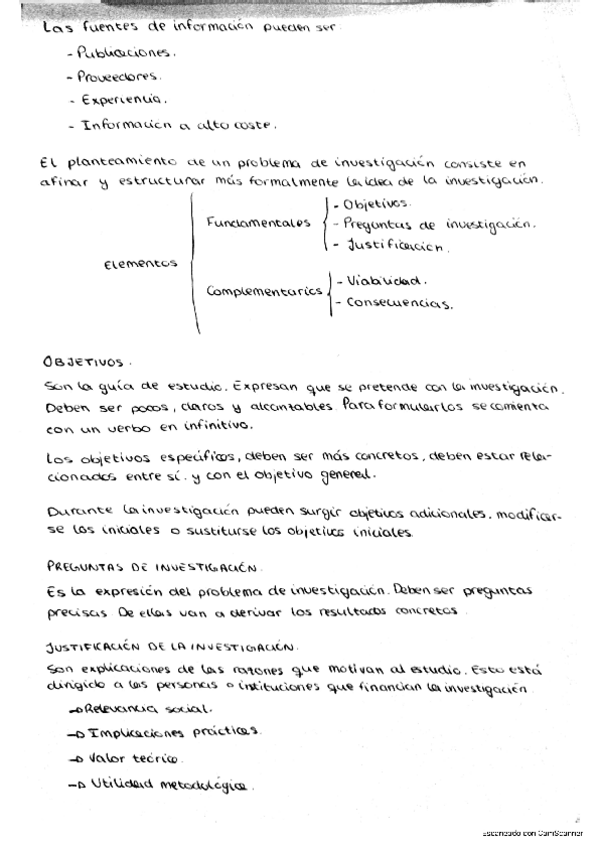 Las fuentes de información pueden ser
- Publicaciones.
- Proveedores.
- Experiencia.
- Información a alto coste.
El planteamiento de un problema de investigación consiste en
afinar y estructurar más formalmente la idea de la investigación.
Elementos
Fundamentales
- Objetivos.
- Preguntas de investigación.
- Justificación.
Complementarios
- Viabilidad.
- Consecuencias.
OBJETIVOS.
Son la guía de estudio. Expresan que se pretende con la investigación.
Deben ser pocos, claros y alcanzables. Para formularlos se comienta
con un verbo en infinitivo.
Los objetivos específicos, deben ser más concretos, deben estar rela-
cionados entre sí. y con el objetivo general.
Durante la investigación pueden surgir objetivos adicionales, modificar-
se los iniciales o sustiturse los objetivos iniciales.
PREGUNTAS DE INVESTIGACIÓN.
Es la expresión del problema de investigación. Deben ser preguntas
precisas De ellas van a derivar los resultados concretos.
JUSTIFICACIÓN DE LA INVESTIGACIÓN.
Son explicaciones de las razones que motivan al estudio. Esto está
dirigido a las personas o intituciones que financian la investigación
→ Relevancia social.
→ Implicaciones prácticas.
→ Valor teórico.
→ Utilidad metodológica.
Escaneado con CamScanner